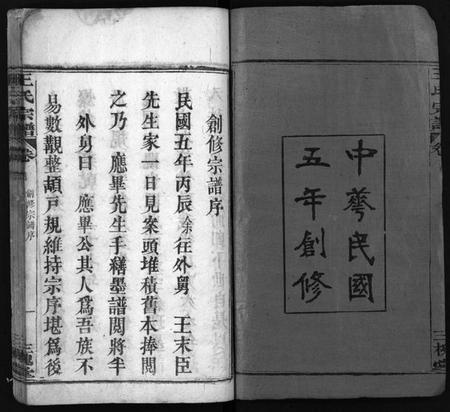 中華民國
五年創修
王氏宗譜
創修宗譜序
民國五年丙辰余往外舅 王末臣
先生家一日見案頭堆積舊本捧閱
之乃 應畢先生手繕墨譜閱將半
外舅曰 應畢公其人為吾族不
易數觀整頓戶規維持宗序堪為後
王氏宗譜 卷 創修宗譜序 一 三槐堂